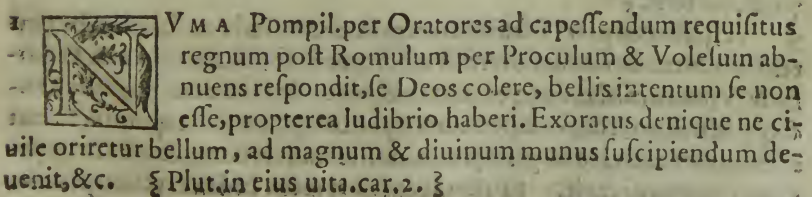 1 NVMA Pompil.per Oratores ad capeſſendum requiſitus
regnum poſt Romulum per Proculum & Voleſum ab-
nuens reſpondit,ſe Deos colere, bellis intentum ſe non
eſſe,propterea ludibrio haberi. Exoratus denique ne ci-
uile oriretur bellum, ad magnum & diuinum munus ſuſcipiendum de-
uenit,&c. ⸾ Plut.in eius uita.car.2. ⸾